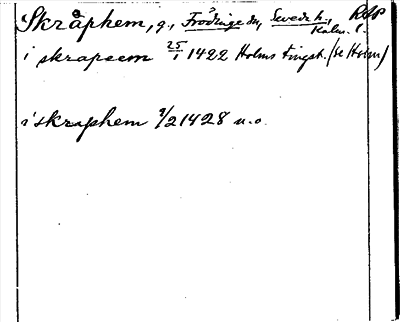 Skråphem, g., Frödinge sn, Sevede h., Kalm. l. RAP
i skrapeem 25/1 1422 Holms tingst. (se Holm)
i skraphem 9/2 1428 u.o.